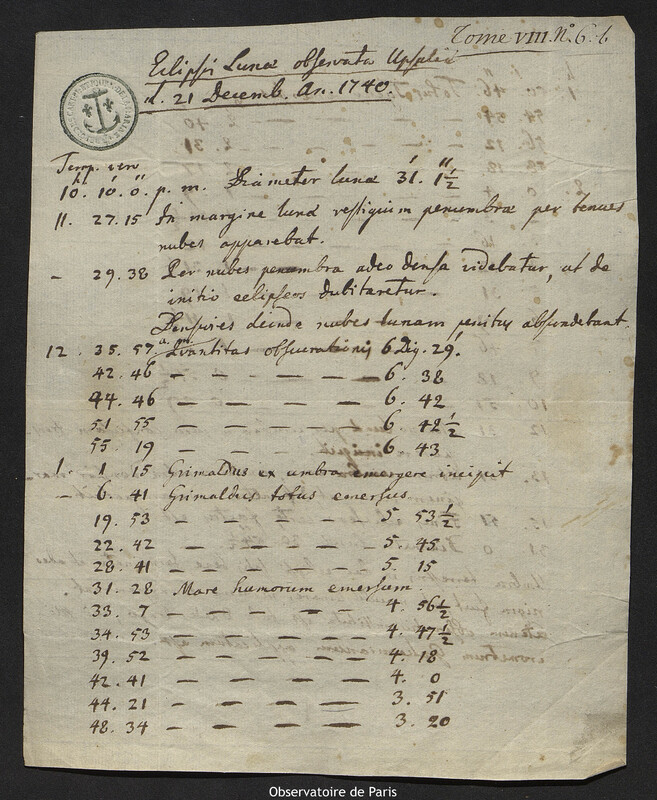 Tome VIII. N.º 6. b
Eclipsis Lunæ observata Upsaliæ
d. 21 Decemb. An. 1740.
Temp. vero
h ' "
10. 10. 0. p. m. Diameter lunæ 31.' 1½"
11. 27. 15 In margine lunæ vestigium penumbræ per tenues
nubes apparebat.
– 29. 38 Per nubes penumbra adeo densa videbatur, ut de
initio eclipseos dubitaretur.
Densiores deinde nubes lunam penitus abscondebant.
12. 35. 57 a. m. Quantitas obscurationis 6 Dig. 29.'
42. 46 – – – – 6. 38
44. 46 – – – – 6. 42
51. 55 – – – – 6. 42½
55. 19 – – – – 6. 43
1. 1. 15 Grimaldus ex umbra emergere incipit
– 6. 41 Grimaldus totus emersus
19. 53 – – – – 5. 53½
22. 42 – – – – 5. 45
28. 41 – – – – 5. 15
31. 28 Mare humorum emersum
33. 7 – – – – 4. 56½
34. 53 – – – – 4. 47½
39. 52 – – – – 4. 18
42. 41 – – – – 4. 0
44. 21 – – – – 3. 51
48. 34 – – – – 3. 20
Observatoire de Paris